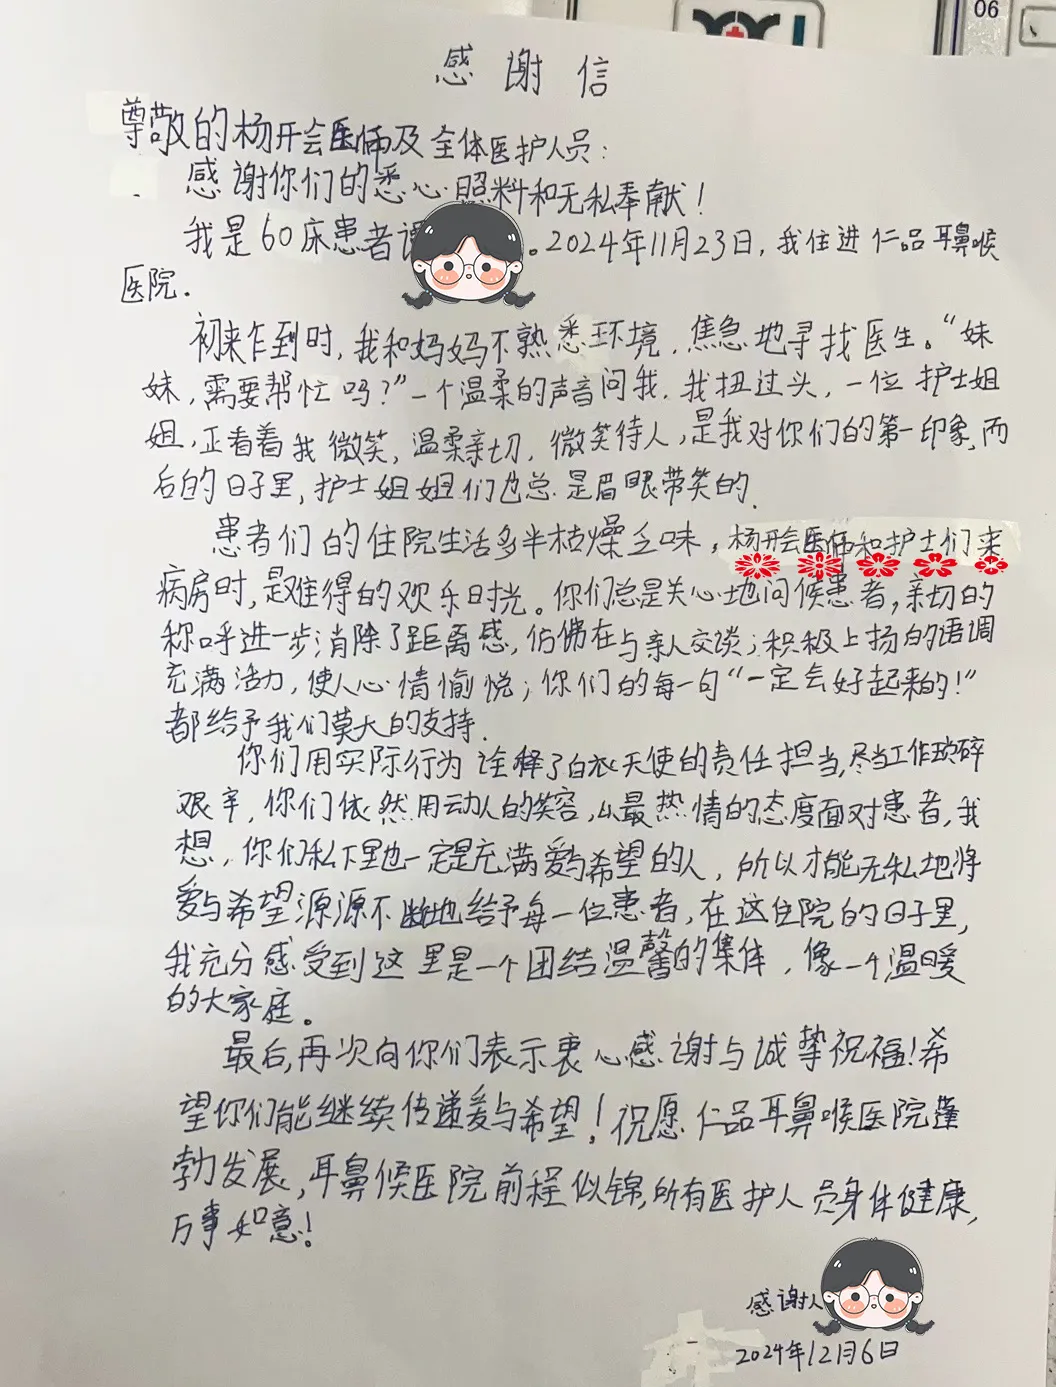 06
感谢信
尊敬的杨开会医师及全体医护人员：
感谢你们的悉心照料和无私奉献！
我是60床患者谭。2024年11月23日，我住进仁品耳鼻喉
医院.
初来乍到时，我和妈妈不熟悉环境，焦急地寻找医生。“妹
妹，需要帮忙吗？”一个温柔的声音问我，我扭过头，一位护士姐
姐，正看着我微笑，温柔亲切，微笑待人，是我对你们的第一印象，而
后的日子里，护士姐姐们也总是眉眼带笑的.
患者们的住院生活多半枯燥乏味，杨开会医师和护士们来
病房时，是难得的欢乐时光。你们总是关心地问候患者，亲切的
称呼进一步消除了距离感，仿佛在与亲人交谈；积极上扬的语调
充满活力，使人心情愉悦；你们的每一句“一定会好起来的！”
都给予我们莫大的支持.
你们用实际行为诠释了白衣天使的责任担当，尽当工作琐碎
艰辛，你们依然用动人的笑容，以最热情的态度面对患者，我
想，你们私下里也一定是充满爱与希望的人，所以才能无私地将
爱与希望源源不断地给予每一位患者，在这住院的日子里，
我充分感受到这里是一个团结温馨的集体，像一个温暖
的大家庭。
最后，再次向你们表示衷心感谢与诚挚祝福！希
望你们能继续传递爱与希望！祝愿仁品耳鼻喉医院蓬
勃发展，耳鼻候医院前程似锦，所有医护人员身体健康，
万事如意！
感谢人
2024年12月6日